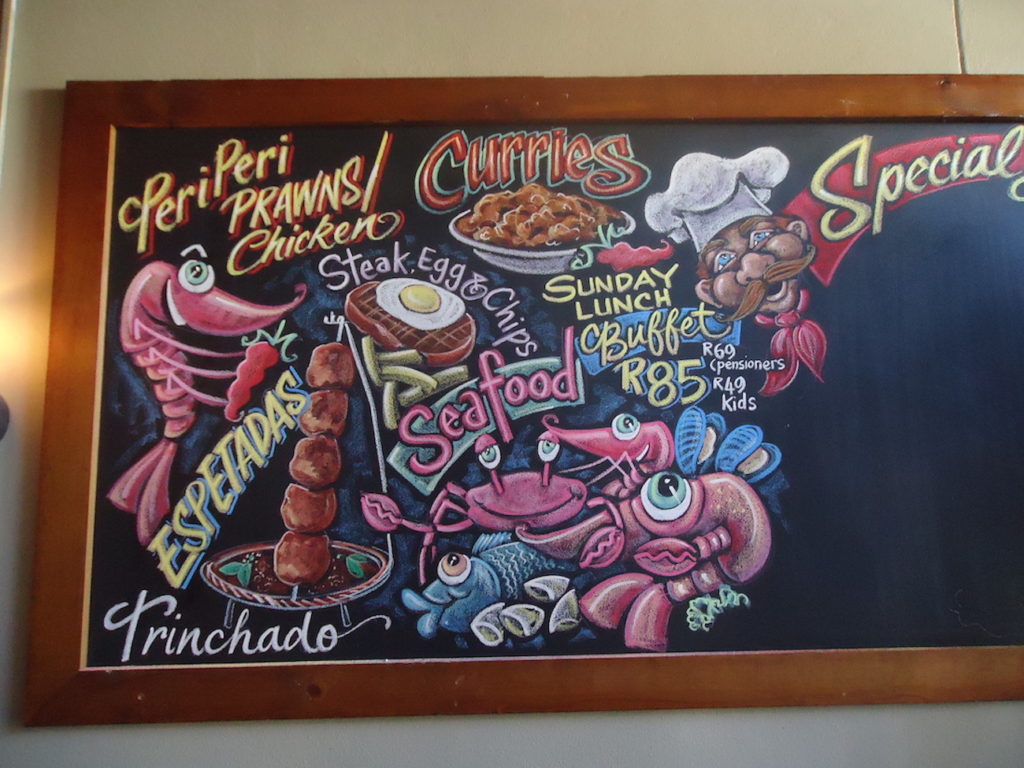 Peri Peri
PRAWNS/
Chicken
Curries
Specials
Steak, Egg & Chips
SUNDAY
LUNCH
Buffet
R85
R69
(pensioners
R49
Kids
Seafood
ESPETADAS
Trinchado